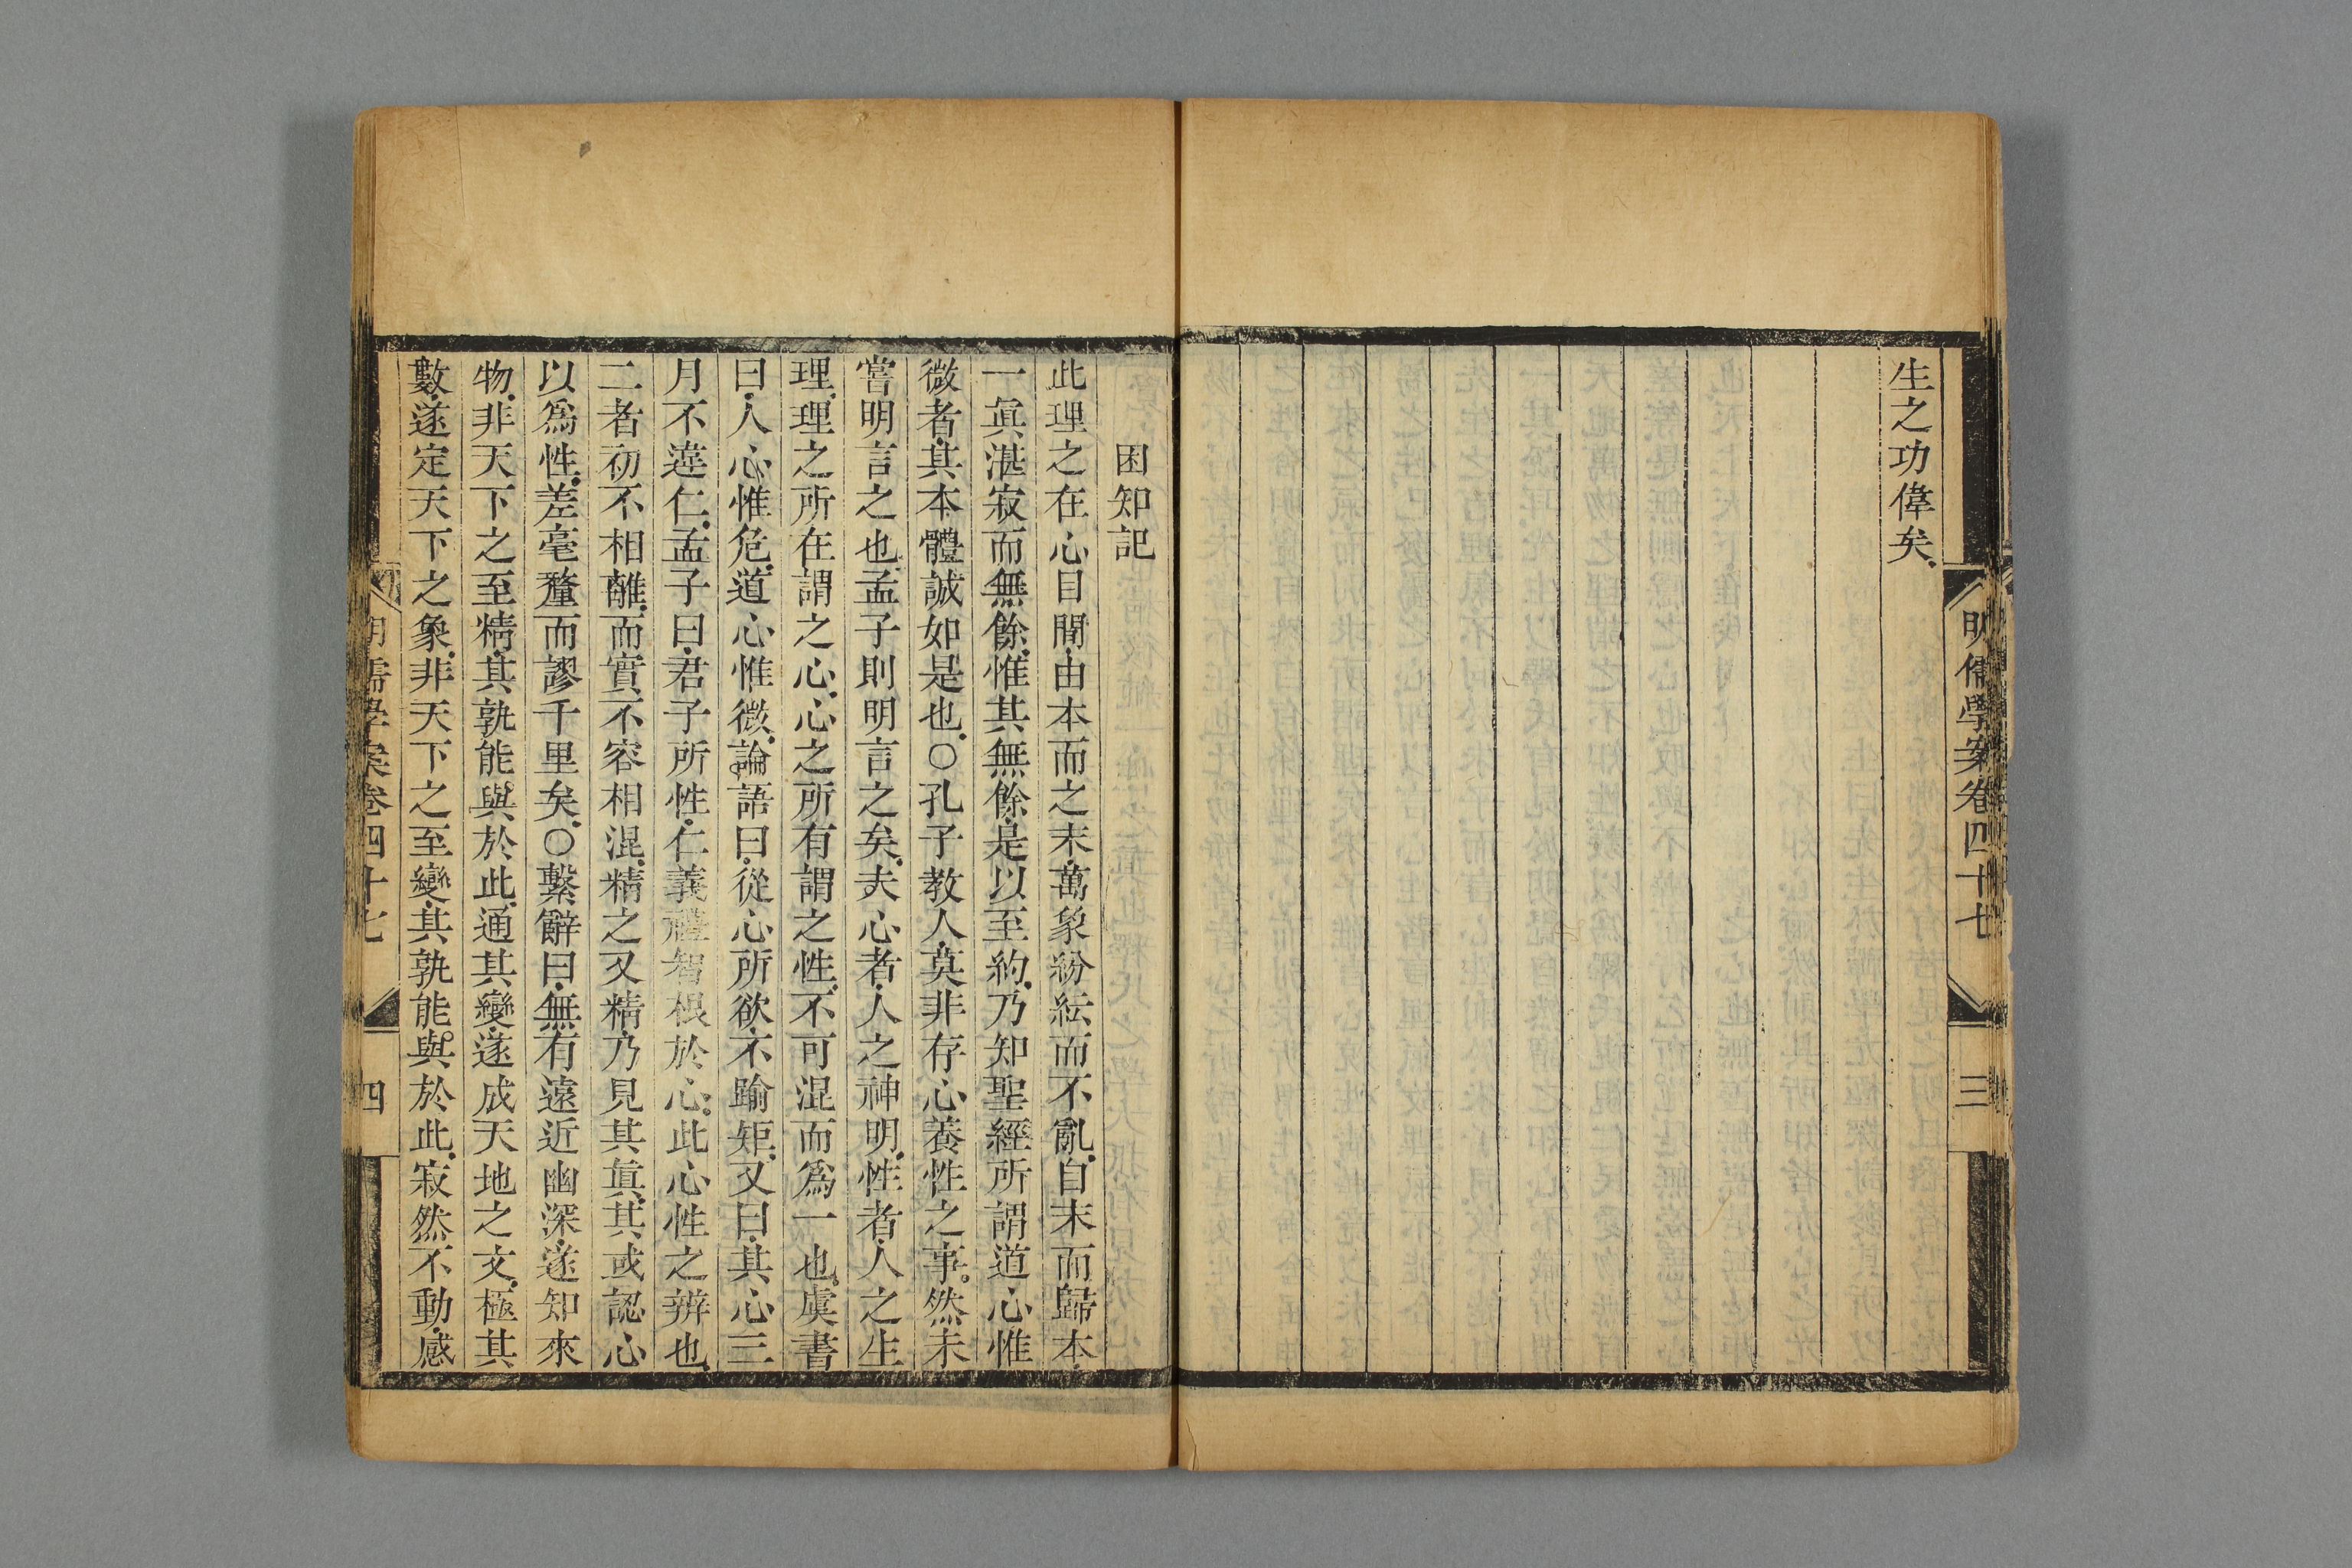 生之功偉矣
明儒學案卷四十七
三
困知記
此理之在心目間由本而之末萬象紛紜而不亂自末而歸本
一眞湛寂而無餘惟其無餘是以至約乃知聖經所謂道心惟
微者其本體誠如是也〇孔子教人莫非存心養性之事然未
嘗明言之也孟子則明言之矣夫心者人之神明性者人之生
理理之所在謂之心心之所有謂之性不可混而爲一也虞書
曰人心惟危道心惟微論語曰從心所欲不踰矩又曰其心三
月不違仁孟子曰君子所性仁義禮智根於心此心性之辨也
二者初不相離而實不容相混精之又精乃見其眞其或認心
以爲性差毫釐而謬千里矣〇繫辭曰無有遠近幽深遂知來
物非天下之至精其孰能與於此通其變遂成天地之文極其
數遂定天下之象非天下之至變其孰能與於此寂然不動感
明儒學案卷四十七
四